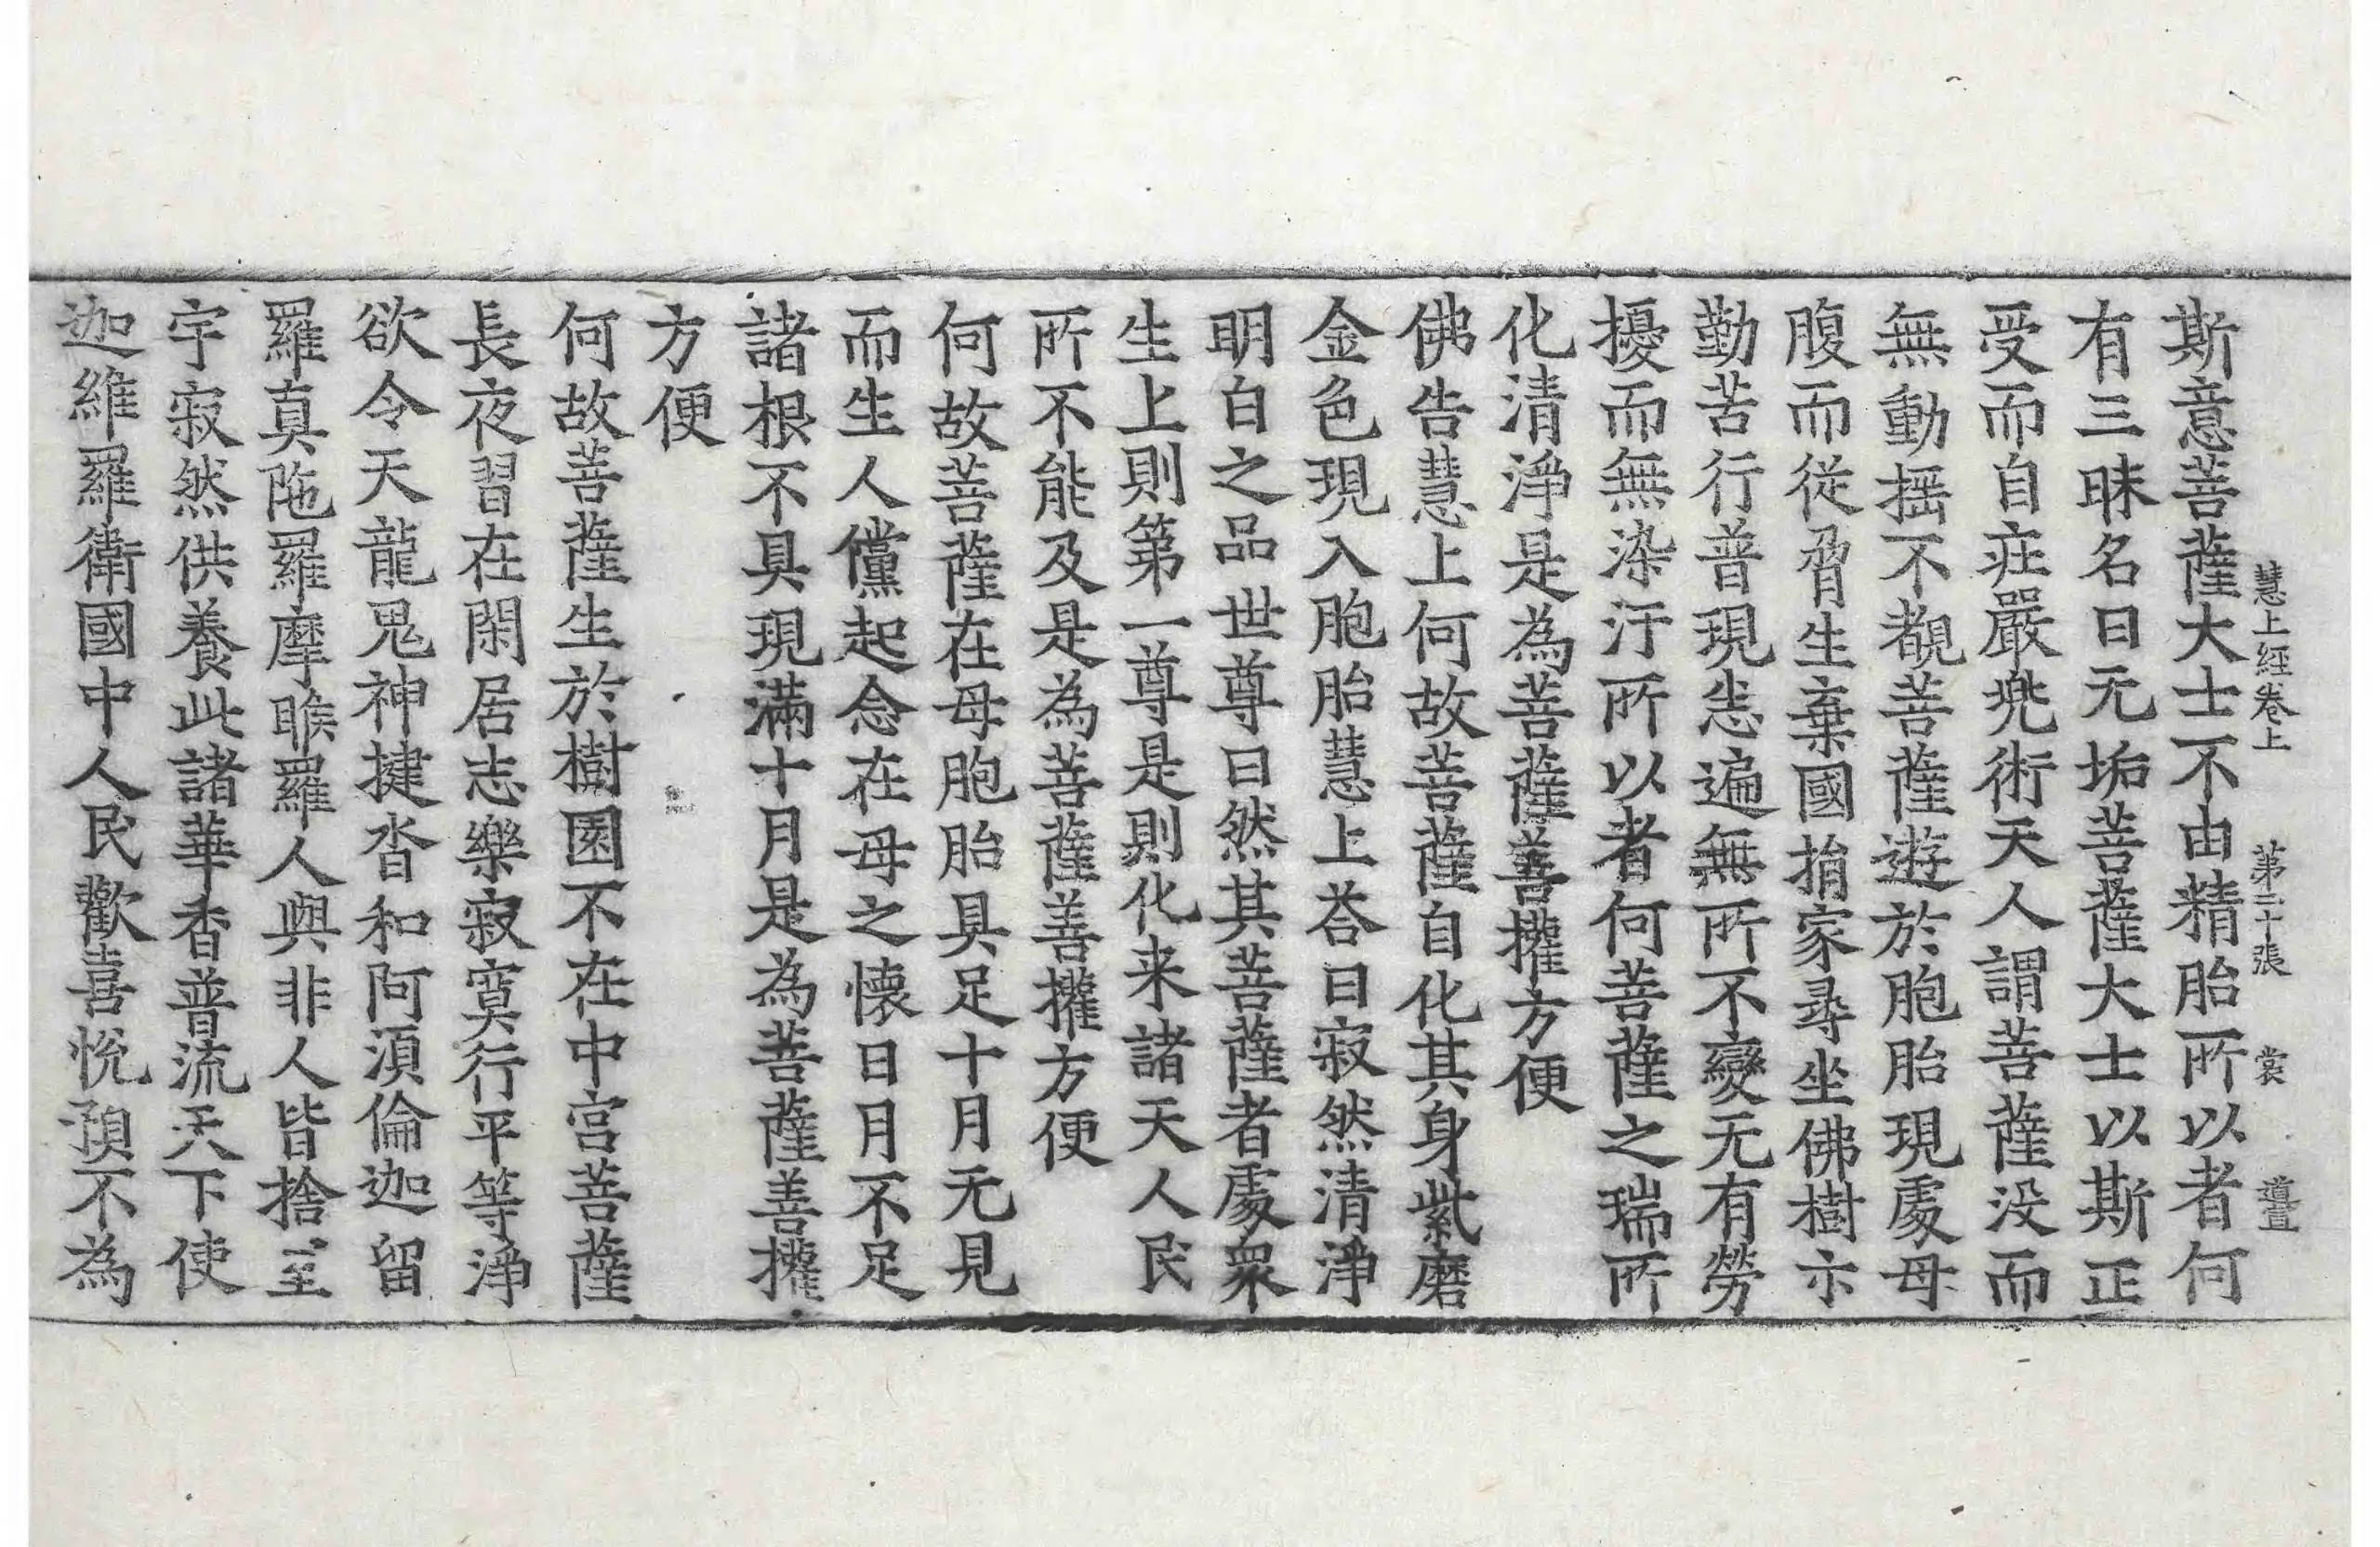 慧上經卷上 第三十張 裳 導
斯意菩薩大士不由精胎所以者何
有三昧名曰无垢菩薩大士以斯正
受而自庄嚴兠術天人謂菩薩没而
無動揺不覩菩薩遊於胞胎現處母
腹而從脅生棄國捐家尋坐佛樹亦
勤苦行普現恙遍無所不變无有勞
擾而無染汙所以者何菩薩之瑞所
化清淨是為菩薩善權方便
佛告慧上何故菩薩自化其身紫磨
金色現入胞胎慧上荅曰寂然清淨
明白之品世尊曰然其菩薩者處衆
生上則第一尊是則化来諸天人民
所不能及是為菩薩善權方便
何故菩薩在母胞胎具足十月无見
而生人儻起念在母之懷日月不足
諸根不具現滿十月是為菩薩善權
方便
何故菩薩生於樹園不在中宫菩薩
長夜習在閑居志樂寂寞行平等淨
欲令天龍鬼神揵沓和阿須倫迦留
羅真陁羅摩睺羅人與非人皆捨室
宇寂然供養此諸華香普流天下使
迦維羅衛國中人民歡喜悅預不為